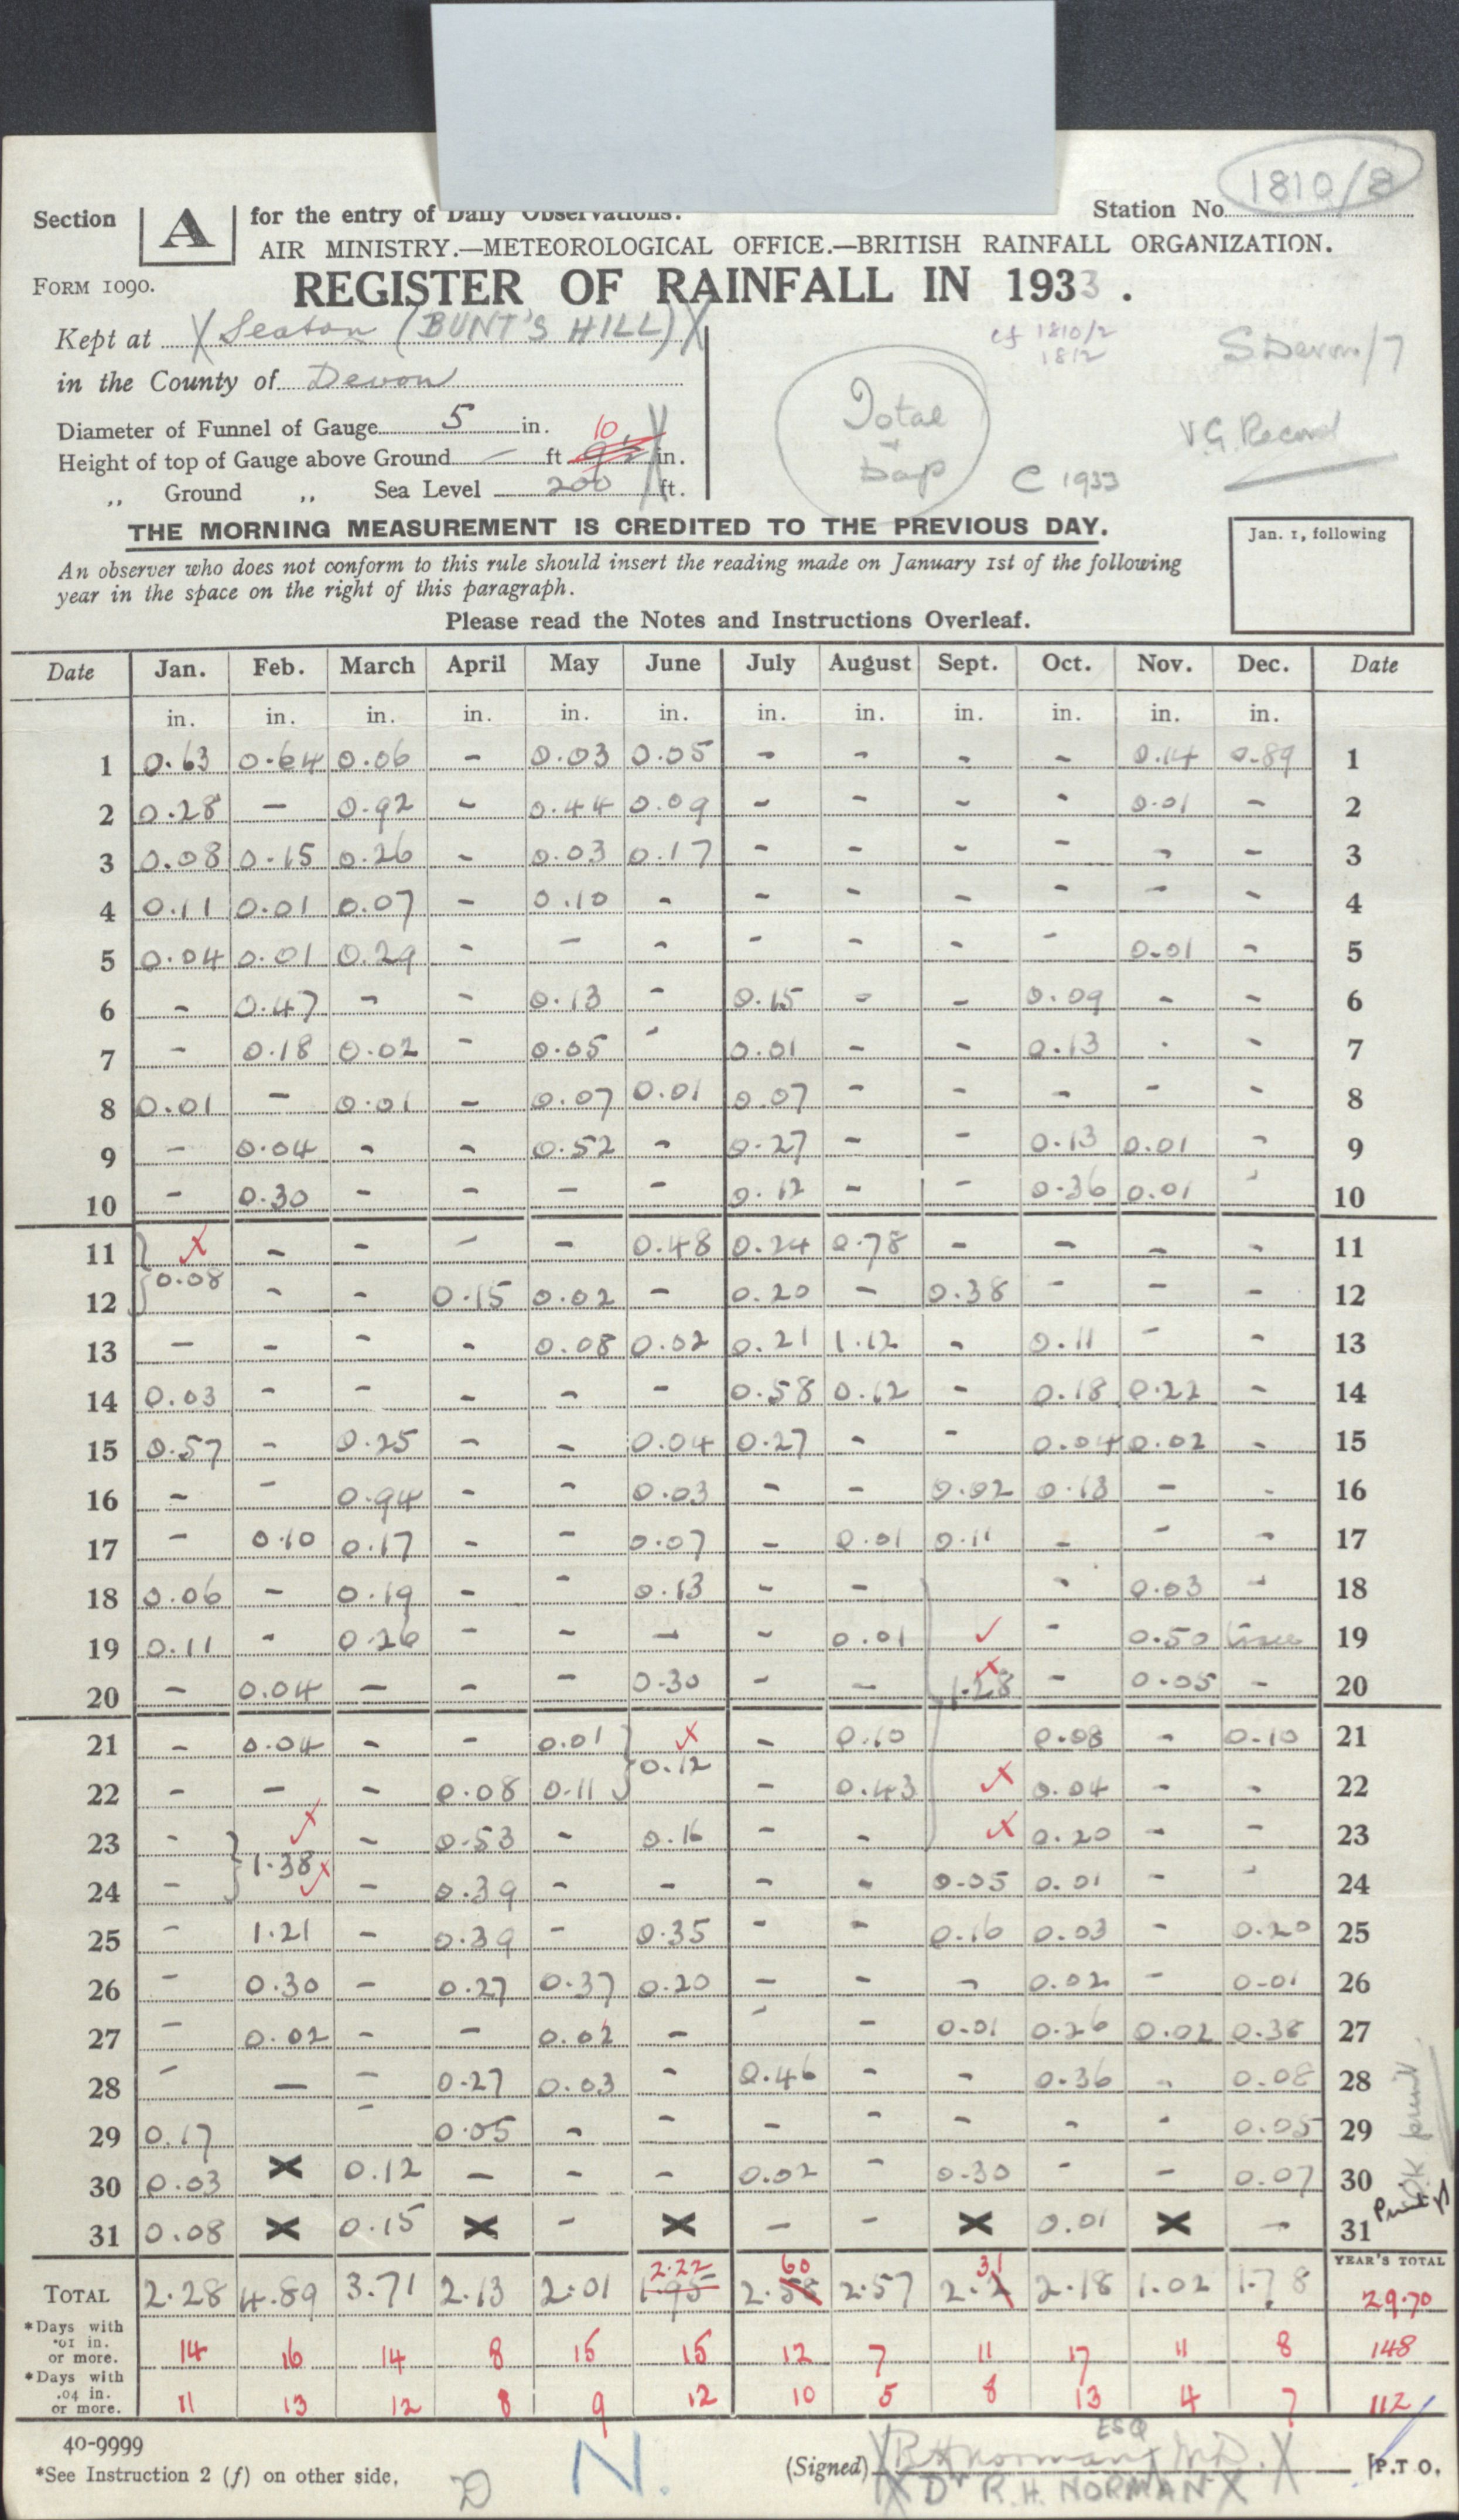 1810/8
Section A for the entry of Daily Observations. Station No.
AIR MINISTRY.—METEOROLOGICAL OFFICE.—BRITISH RAINFALL ORGANIZATION.
FORM 1090. REGISTER OF RAINFALL IN 1933.
Kept at Seaton (BUNT'S HILL) cf 1810/2 S Devon/7
1812
in the County of Devon
Total Dap
Diameter of Funnel of Gauge 5 in. V.G. Record
10
Height of top of Gauge above Ground — ft 9½ in.
,, Ground ,, Sea Level 200 ft. C 1933
THE MORNING MEASUREMENT IS CREDITED TO THE PREVIOUS DAY. Jan. 1, following
An observer who does not conform to this rule should insert the reading made on January 1st of the following
year in the space on the right of this paragraph.
Please read the Notes and Instructions Overleaf.
Date Jan. Feb. March April May June July August Sept. Oct. Nov. Dec. Date
in. in. in. in. in. in. in. in. in. in. in. in.
1 0.63 0.64 0.06 - 0.03 0.05 - - - - 0.14 0.89 1
2 0.28 - 0.92 - 0.44 0.09 - - - - 0.01 - 2
3 0.08 0.15 0.26 - 0.03 0.17 - - - - - - 3
4 0.11 0.01 0.07 - 0.10 - - - - - - - 4
5 0.04 0.01 0.29 - - - - - - - 0.01 - 5
6 - 0.47 - - 0.13 - 0.15 - - 0.09 - - 6
7 - 0.18 0.02 - 0.05 - 0.01 - - 0.13 - - 7
8 0.01 - 0.01 - 0.07 0.01 0.07 - - - - - 8
9 - 0.04 - - 0.52 - 0.27 - - 0.13 0.01 - 9
10 - 0.30 - - - - 0.12 - - 0.36 0.01 - 10
11 - - - - 0.48 0.24 0.78 - - - - 11
12 0.08 - - 0.15 0.02 - 0.20 - 0.38 - - - 12
13 - - - - 0.08 0.02 0.21 1.12 - 0.11 - - 13
14 0.03 - - - - - 0.58 0.12 - 0.18 0.22 - 14
15 0.57 - 0.25 - - 0.04 0.27 - - 0.04 0.02 - 15
16 - - 0.94 - - 0.03 - - 0.02 0.13 - - 16
17 - 0.10 0.17 - - 0.07 - 0.01 0.11 - - - 17
18 0.06 - 0.19 - - 0.13 - - - 0.03 - 18
19 0.11 - 0.26 - - - - 0.01 ✓ - 0.50 trace 19
20 - 0.04 - - - 0.30 - - 1.28 - 0.05 - 20
21 - 0.04 - - 0.01 - 0.10 0.08 - 0.10 21
22 - - - 0.08 0.11 0.12 - 0.43 0.04 - - 22
23 - - 0.53 - 0.16 - - 0.20 - - 23
24 - 1.38 - 0.39 - - - - 0.05 0.01 - - 24
25 - 1.21 - 0.39 - 0.35 - - 0.16 0.03 - 0.20 25
26 - 0.30 - 0.27 0.37 0.20 - - - 0.02 - 0.01 26
27 - 0.02 - - 0.02 - - - 0.01 0.26 0.02 0.38 27
28 - - - 0.27 0.03 - 0.46 - - 0.36 - 0.08 28
29 0.17 - 0.05 - - - - - - - 0.05 29
30 0.03 X 0.12 - - - 0.02 - 0.30 - - 0.07 30
31 0.08 X 0.15 X - X - - X 0.01 X - 31
2.22 60 31 YEAR'S TOTAL
TOTAL 2.28 4.89 3.71 2.13 2.01 1.95 2.58 2.57 2.2 2.18 1.02 1.78 29.70
*Days with .01 in. or more. 14 16 14 8 15 15 12 7 11 17 11 8 148
*Days with .04 in. or more. 11 13 12 8 9 12 10 5 8 13 4 7 112
40-9999
ESQ
(Signed) R H Norman M.D. [P.T.O.
*See Instruction 2 (f) on other side. D N. Dr R.H. NORMAN